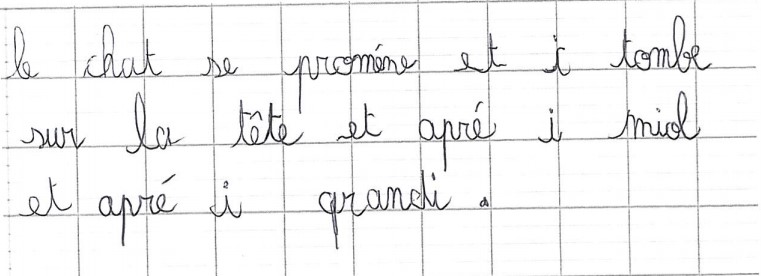 le chat se proméne et i tombe
sur la tête et apré i miol
et apré i grandi.